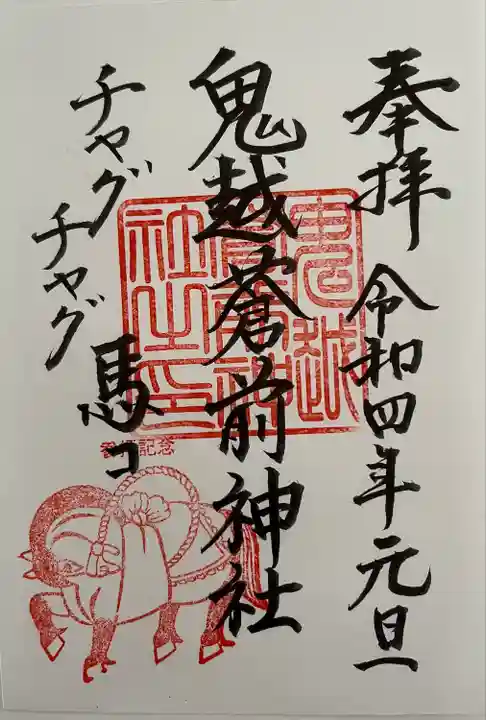 奉拝 令和四年元旦
鬼越蒼前神社
チャグ
チャグ
馬コ
鬼越
蒼前神
社之印
参拝記念